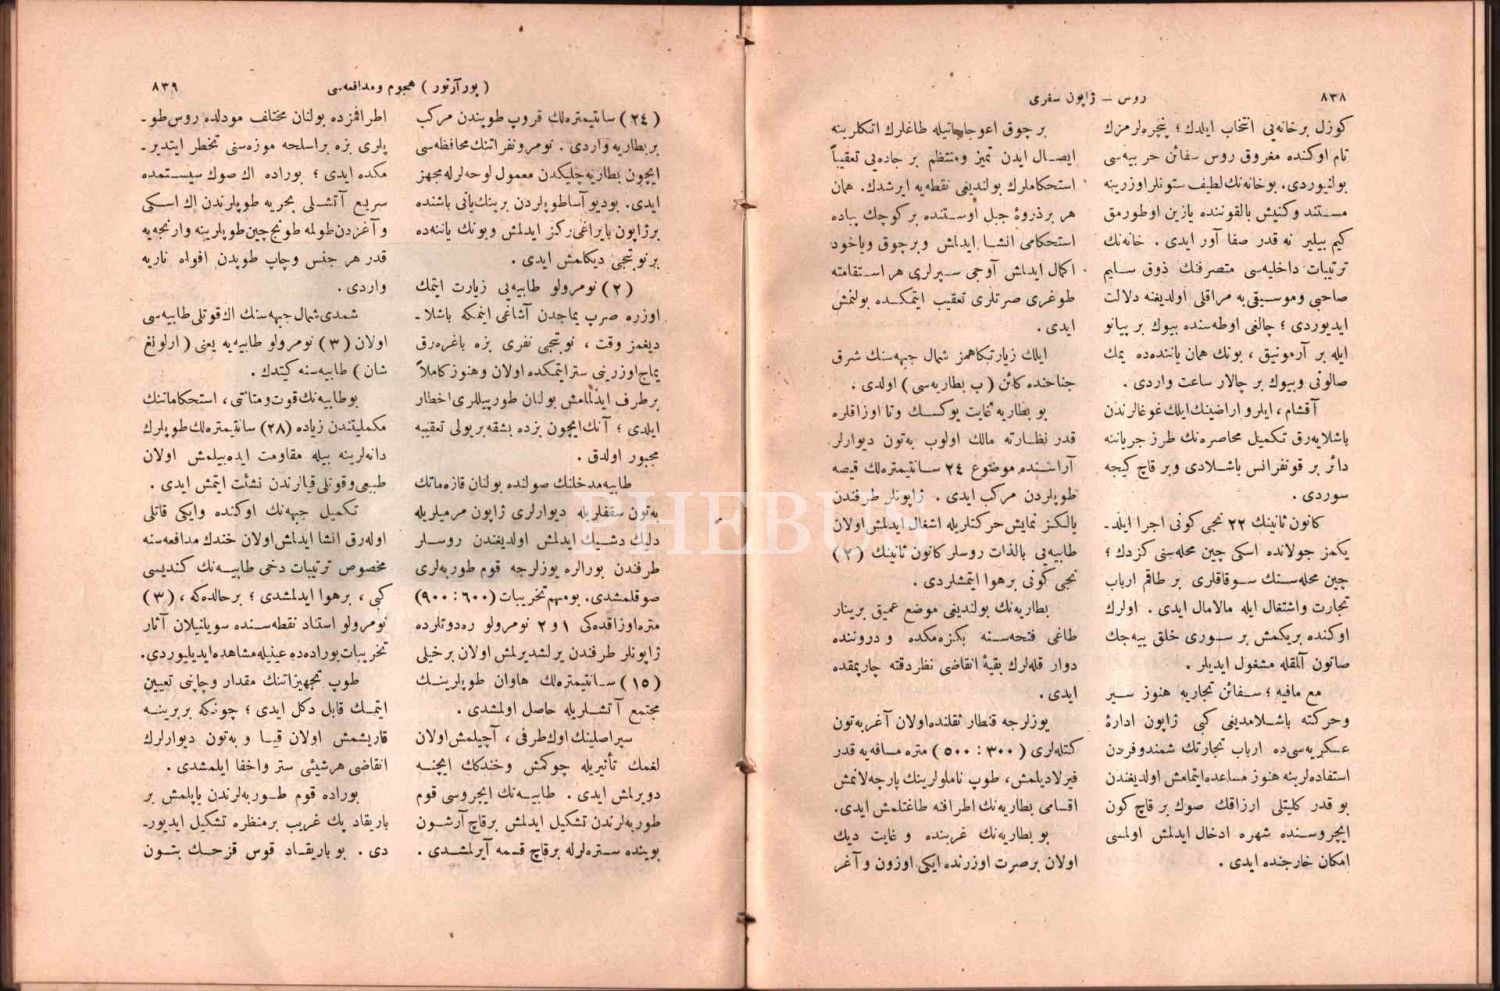 ٨٣٨
روس — ژاپون سفری
كوزل برخانه‌یی انتخاب ایلدك ؛ پنجره‌لرمزك
تام اوكنده مغروق روس سفائن حربیه‌سی
بولنیوردی . بوخانه‌نك لطیف ستونلر اوزرینه
مستند وكنیش بالقوننده یازین اوطورمق
كیم بیلیر نه قدر صفا آور ایدی . خانه‌نك
ترتیبات داخلیه‌سی متصرفنك ذوق سلیم
صاحبی وموسیقی‌یه مراقلی اولدیغنه دلالت
ایدیوردی ؛ چالغی اوطه‌سنده بیوك بر پیانو
ایله بر آرمونیق ، بونك همان یاننده‌ده یمك
صالونی وبیوك بر چالار ساعت واردی .
آقشام ، ایلرو اراضینك ایلك غوغالرندن
باشلایه‌رق تكمیل محاصره‌نك طرز جریاننه
دائر بر قونفرانس باشلادی وبر قاچ كیجه
سوردی .
كانون ثانینك ٢٢ نجی كونی اجرا ایلد-
یكمز جولانده اسكی چین محله‌سنی كزدك ؛
چین محله‌سنك سوقاقلری بر طاقم ارباب
تجارت واشتغال ایله مالامال ایدی . اولرك
اوكنده بریكمش بر سوری خلق بیه‌جك
صاتون آلمقله مشغول ایدیلر .
مع مافیه ؛ سفائن تجاریه هنوز سیر
وحركته باشلامدیغی كبی ژاپون ادارۀ
عسكریه‌سی‌ده ارباب تجارتك شمندوفردن
استفاده‌لرینه هنوز مساعده ایتمامش اولدیغندن
بو قدر كلیتلی ارزاقك صوك بر قاچ كون
ایچروسنده شهره ادخال ایدلمش اولمسی
امكان خارجنده ایدی .
بر چوق اعوجاجاتیله طاغلرك اتكلرینه
ایصال ایدن تمیز ومنتظم بر جاده‌یی تعقیباً
استحكاملرك بولندیغی نقطه‌یه ایرشدك . همان
هر بر ذروۀ جبل اوستنده بر كوچك پیاده
استحكامی انشا ایدلمش وبر چوق ویاخود
اكمال ایدلمش آوجی سپرلری هر استقامته
طوغری صرتلری تعقیب ایتمكده بولنمش
ایدی .
ایلك زیارتكاهمز شمال جبهه‌سنك شرق
جناحنده كائن ( ب بطاریه‌سی ) اولدی .
بو بطاریه غایت یوكسك وتا اوزاقلره
قدر نظارته مالك اولوب به‌تون دیوارلر
آراسنده موضوع ٢٤ سانتیمتره‌لك قیصه
طوپلردن مركب ایدی . ژاپونلر طرفندن
یالكز نمایش حركتلریله اشغال ایدلمش اولان
طابیه‌یی بالذات روسلر كانون ثانینك (٢)
نجی كونی بر هوا ایتمشلردی .
بطاریه‌نك بولندیغی موضع عمیق بر ینار
طاغی فتحه‌سنه بكزه‌مكده و دروننده
دوار قله‌لرك بقیۀ انقاضی نظر دقته چارپمقده
ایدی .
یوزلرجه قنطار ثقلنده اولان آغر به‌تون
كتله‌لری ( ٣٠٠ : ٥٠٠ ) متره مسافه‌یه قدر
فیرلادیلمش ، طوپ ناملولرینك پارچه‌لانمش
اقسامی بطاریه‌نك اطرافنه طاغتلمش ایدی .
بو بطاریه‌نك غربنده و غایت دیك
اولان بر صرت اوزرنده ایكی اوزون و آغر
( پور آرتور ) هجوم ومدافعه‌سی
٨٣٩
(٢٤) سانتیمتره‌لك قروپ طوپندن مركب
بر بطاریه واردی . نومرو نفراتنك محافظه‌سی
ایچون بطاریه چلیكدن معمول لوحه‌لرله مجهز
ایدی . بودیو آسا طوپلردن برینك یانی باشنده
بر ژاپون بایراغی ركز ایدلمش وبونك یاننده‌ده
بر نوبتجی دیكلمش ایدی .
(٢) نومرولو طابیه‌یی زیارت ایتمك
اوزره صرپ یماجدن آشاغی ایتمكه باشلا-
دیغمز وقت ، نوبتجی نفری بزه باغره‌رق
یماج اوزرینی ستر ایتمكده اولان وهنوز كاملاً
بر طرف ایدلمامش بولنان طورپیللری اخطار
ایلدی ؛ آنك ایچون بزده بشقه بر یولی تعقیبه
مجبور اولدق .
طابیه مدخلنك صولنده بولنان قازه‌ماتك
به‌تون سقفلریله دیوارلری ژاپون مرمیلریله
دلیك دشیك ایدلمش اولدیغندن روسلر
طرفندن بورالره یوزلرجه قوم طوربه‌لری
صوقلمشدی . بو مهم تخریبات (٦٠٠ : ٩٠٠)
متره اوزاقده‌كی ١ و ٢ نومرولو ره‌دوتلرده
ژاپونلر طرفندن یرلشدیرلمش اولان بر خیلی
(١٥) سانتیمتره‌لك هاوان طوپلرینك
مجتمع آتشلریله حاصل اولمشدی .
سپر اصلینك اوك طرفی ، آچیلمش اولان
لغمك تأثیریله چوكمش وخندكك ایچنه
دویرلمش ایدی . طابیه‌نك ایچروسی قوم
طوربه‌لرندن تشكیل ایدلمش بر قاچ آرشون
بوینده ستره‌لرله بر قاچ قسمه آیرلمشدی .
اطرافمزده بولنان مختلف مودلده روس طو-
پلری بزه بر اسلحه موزه‌سنی تخطر ایتدیر-
مكده ایدی ؛ بوراده اك صوك سیستمده
سریع آتشلی بحریه طوپلرندن اك اسكی
و آغزدن طولمه طونج چین طوپلرینه وارنجه‌یه
قدر هر جنس وچاپ طوپدن افواه ناریه
واردی .
شمدی شمال جبهه‌سنك اك قوتلی طابیه‌سی
اولان (٣) نومرولو طابیه‌یه یعنی ( ارلونغ
شان ) طابیه‌سنه كیتدك .
بو طابیه‌نك قوت ومتانتی ، استحكاماتنك
مكملیتندن زیاده (٢٨) سانتیمتره‌لك طوپلرك
دانه‌لرینه بیله مقاومت ایده‌بیلمش اولان
طبیعی وقوتلی قیالرندن نشئت ایتمش ایدی .
تكمیل جبهه‌نك اوكنده وایكی قاتلی
اوله‌رق انشا ایدلمش اولان خندك مدافعه‌سنه
مخصوص ترتیبات دخی طابیه‌نك كندیسی
كبی ، بر هوا ایدلمشدی ؛ بر حالده كه ، (٣)
نومرولو استناد نقطه‌سنده سویلنیلان آثار
تخریبات بوراده‌ده عینیله مشاهده ایدیلیوردی .
طوپ تجهیزاتنك مقدار وچاپنی تعیین
ایتمك قابل دكل ایدی ؛ چونكه بربرینه
قاریشمش اولان قیا و به‌تون دیوارلرك
انقاضی هر شیئی ستر واخفا ایلمشدی .
بوراده قوم طوربه‌لرندن یاپلمش بر
باریقاد پك غریب بر منظره تشكیل ایدیور-
دی . بو باریقاد قوس قزحك بتون
PHEBUS